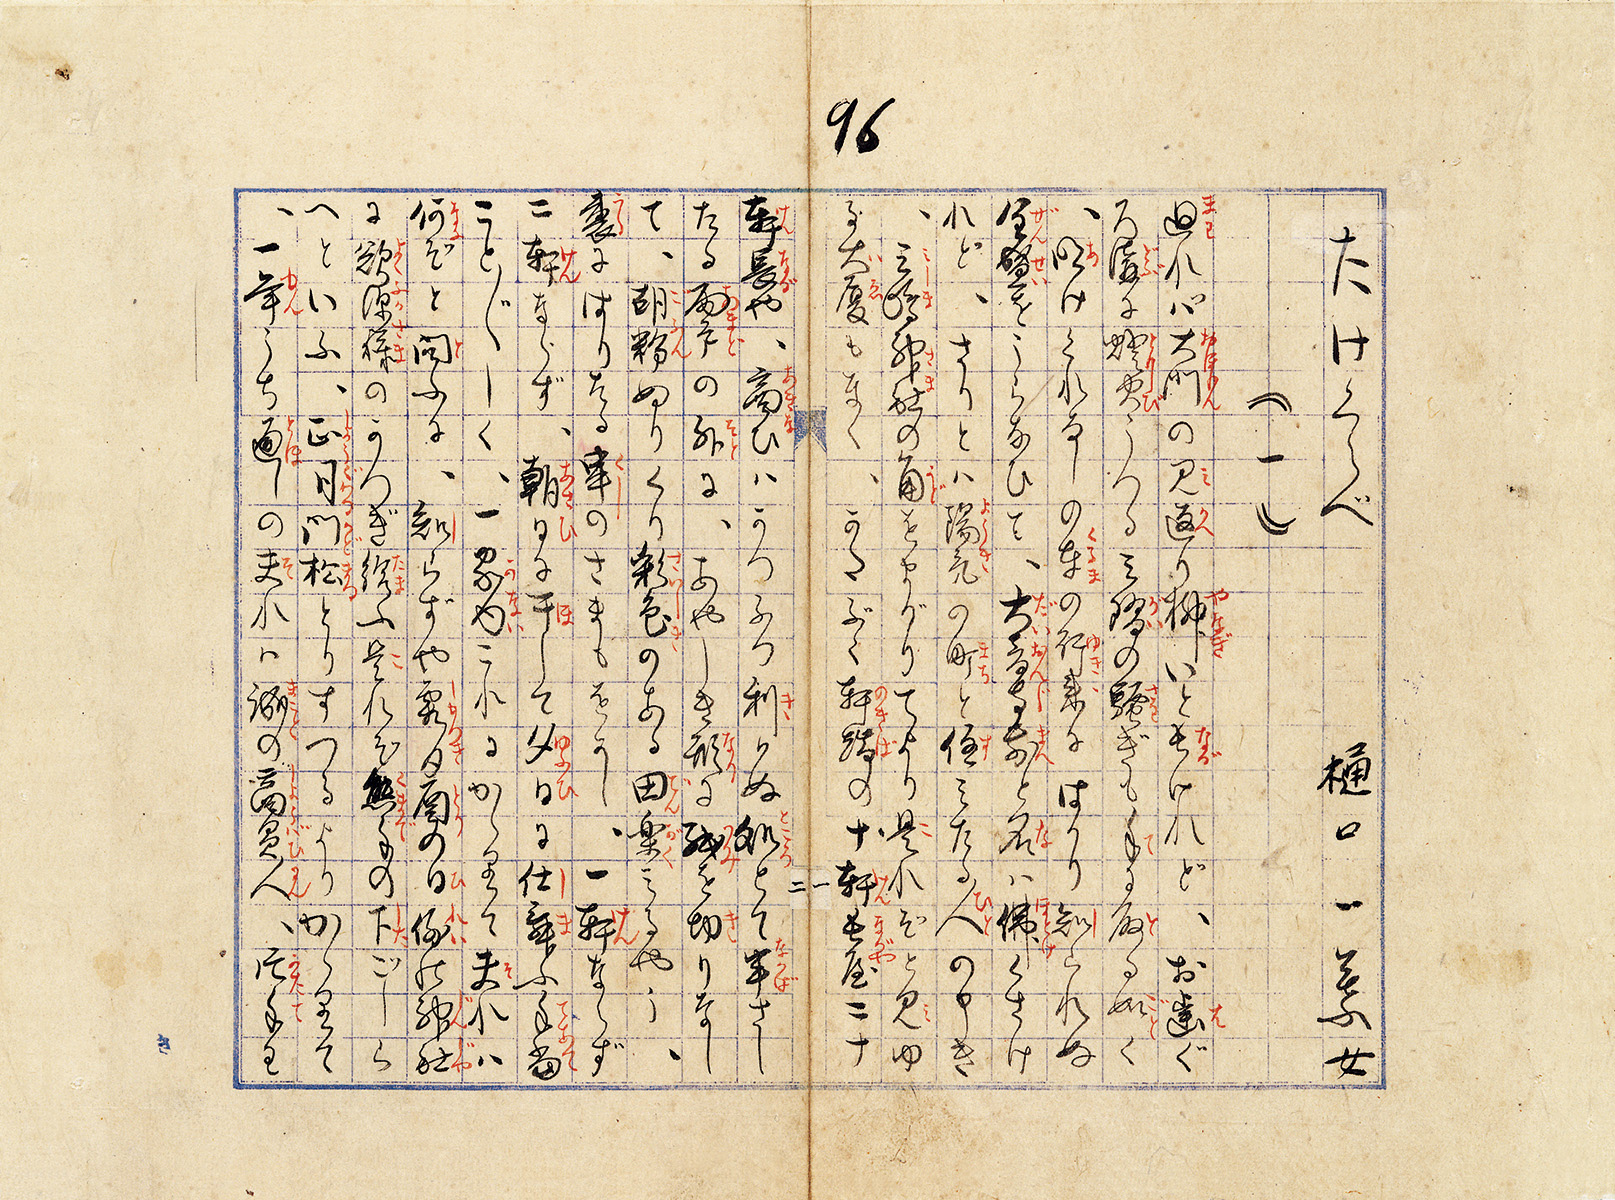 96
たけくらべ　樋口一葉女
（一）
廻れバ大門の見返り柳いと長けれど、お歯ぐ
ろ溝に燈火うつる三階の騒ぎも手に取る如く
、明けくれなしの車の行来にはかり知られぬ
全盛をうらなひて、大音寺前と名ハ佛くさけ
れど、さりとハ陽気の町と住みたる人の申き
、三嶋神社の角をまがりてより是れぞと見ゆ
る大厦もなく、かたぶく軒端の十軒長屋二十
軒長や、商ひハかつふつ利かぬ処とて半さし
たる雨戸の外に、あやしき形に紙を切りなし
て、胡粉ぬりくり彩色のある田楽みるやう、
裏にはりたる串のさまもをかし、一軒ならず
二軒ならず、朝日に干して夕日に仕舞ふ手当
こと〴〵しく、一家内これにかゝりて夫れハ
何ぞと問ふに、知らずや霜月酉の日例の神社
に欲深様のかつぎ給ふ是れぞ熊手の下ごしら
へといふ、正月門松とりすつるよりかゝりて
、一年うち通しの夫れハ誠の商買人、片手わ